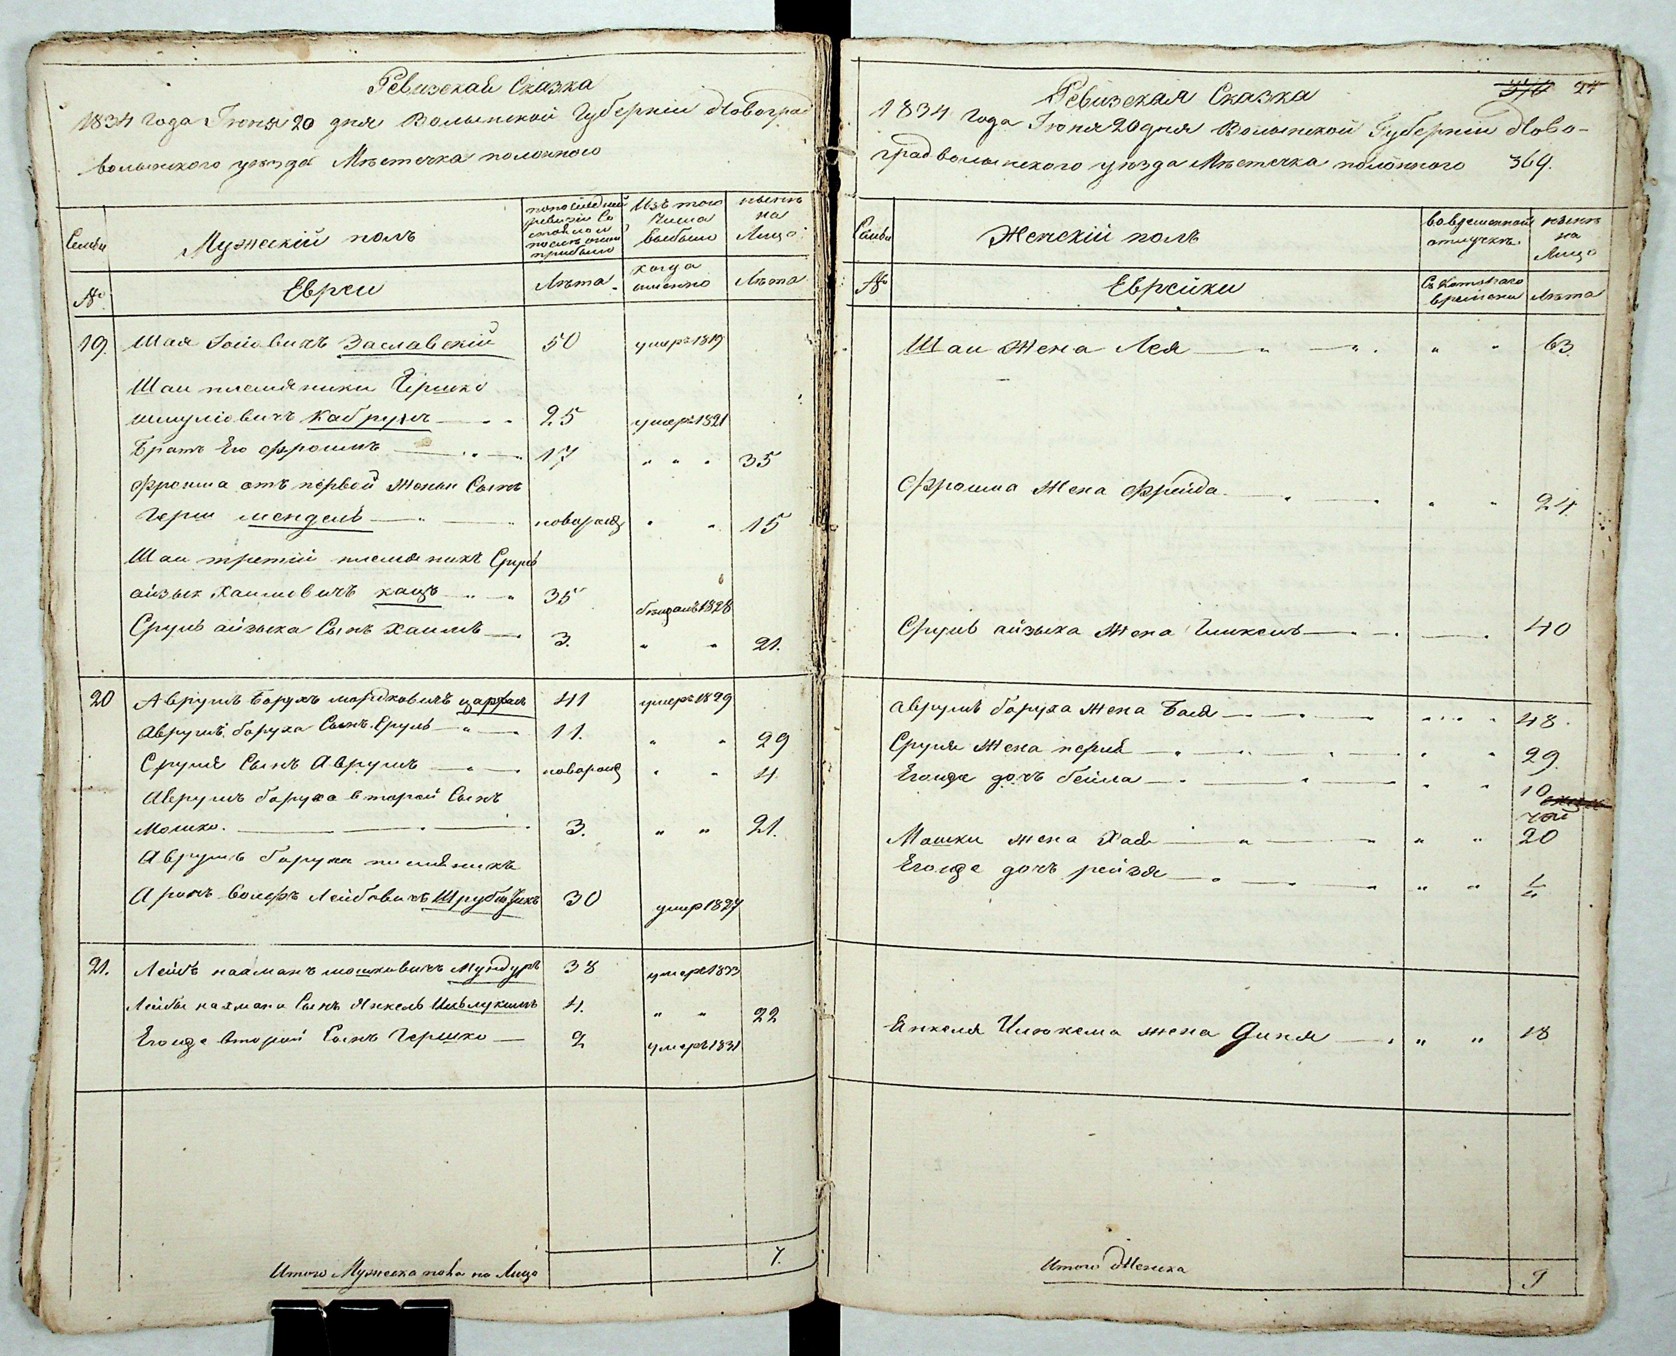 Ревизская Сказка
1834 года Июня 20 дня Волынской Губернии Новоград
волынского уезда Мѣстечка полонного
Семьи
Мужескій полъ
по последней
ревизіи Со
стояло и
после оной
прибыло
Изъ того
Числа
выбыло
нынѣ
на
Лицо
№
Евреи
Лѣта
когда
именно
Лѣта
19. Шая Іосiовичъ Заславскій 50 умеръ 1819
Шаи племяники Гершко
шмуліовичъ Кабрунъ 25 умеръ 1821
Братъ Его Фроимъ 17 " " " 35
Фроима отъ первой Жены Сынъ
Герш мендель новорожд " " 15
Шаи третій племяникъ Сруль
айзык Хаимовичъ кацъ 35 бѣжалъ 1828
Сруль айзыка Сынъ Хаимъ 3. " " 21.
20 Аврумъ Борухъ мордковичъ 41 умеръ 1829
Аврумъ боруха Сынъ Сруль 11. " " 29
Сруля Сынъ Аврумъ новорожд " " 4
Аврумъ боруха второй Сынъ
Мошко. 3. " " 21.
Аврумъ боруха племяникъ
Аронъ Волфъ Лейбовичъ 30 умер 1827
21. Лейбъ нахманъ мошковичъ Мундуръ 38 умеръ 1833
Лейбы нахмана Сынъ Янкель 4. " " 22
Егожде второй Сынъ Гершко 2 умеръ 1831
Итого Мужеска пола на Лицо 7.
Ревизская Сказка 24
1834 года Июня 20 дня Волынской Губернии Ново-
градволынского уезда Мѣстечка полонного 369.
Семьи
Женскій полъ
во временной
отлучкѣ
нынѣ
на
Лицо
№
Еврейки
Съ Котораго
времени
Лѣта
Шаи Жена Лея " " 63.
Фроима Жена Фрейда " " 24.
Сруль айзыка Жена 40
аврумъ боруха Жена Бася " " 48.
Сруля Жена перля " " 29.
Егожде дочъ бейла " " 10
Мошки жена Хая " " 20
Егожде дочъ рейзя " " 1/4
Енкеля жена Диня " " 18
Итого Женска 9